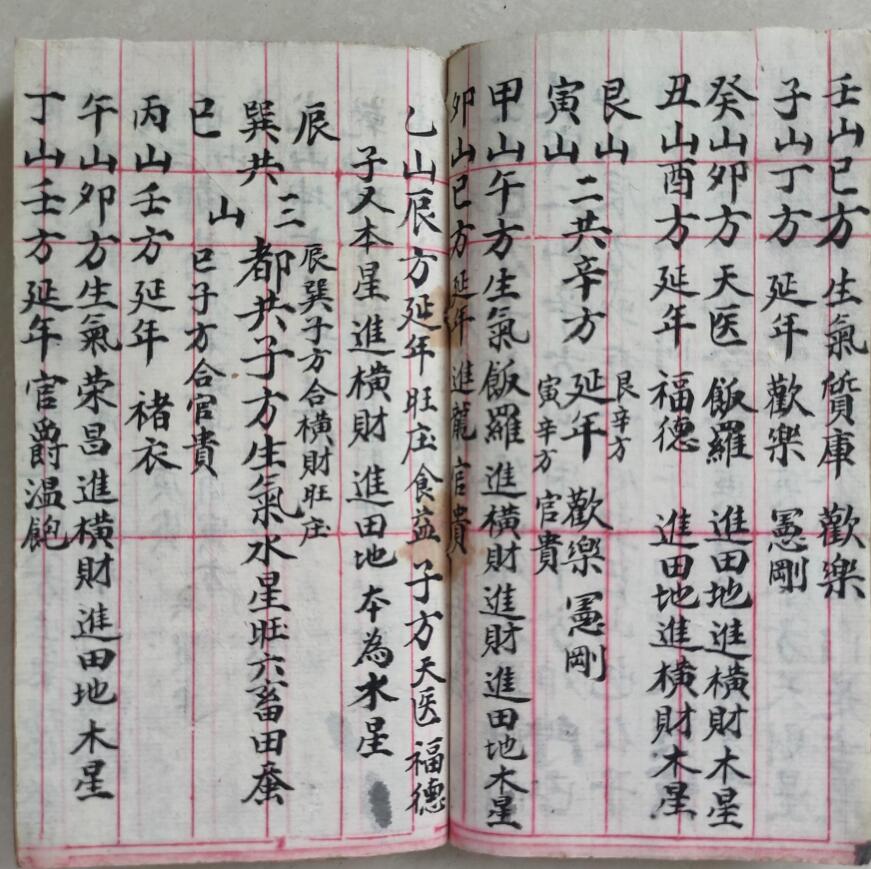 壬山巳方 生氣 質庫 歡樂
子山丁方 延年 歡樂 憲剛
癸山夘方 天医 飯羅 進田地進橫財木星
丑山酉方 延年 福德 進田地進橫財木星
艮山 艮辛方
二共辛方 延年 歡樂 憲剛
寅山 寅辛方 官貴
甲山午方生氣飯羅進橫財進財進田地木星
夘山巳方延年進龍官貴
乙山辰方延年旺庄食益 子方天医福德
子又本星進橫財進田地 本為水星
辰 辰巽子方合橫財旺庄
巽共三山 都共子方生氣水星旺六畜田蚕
巳 巳子方合官貴
丙山壬方延年 褚衣
午山夘方生氣荣昌進橫財進田地木星
丁山壬方延年官爵溫飽